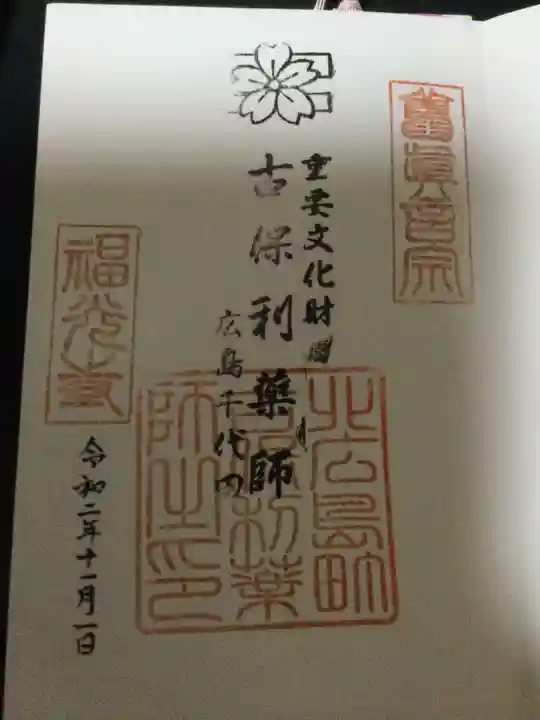 舊真言宗
重要文化財
古保利薬師
広島千代田
北広島町
古保利薬
師之印
福光寺
令和二年十一月一日